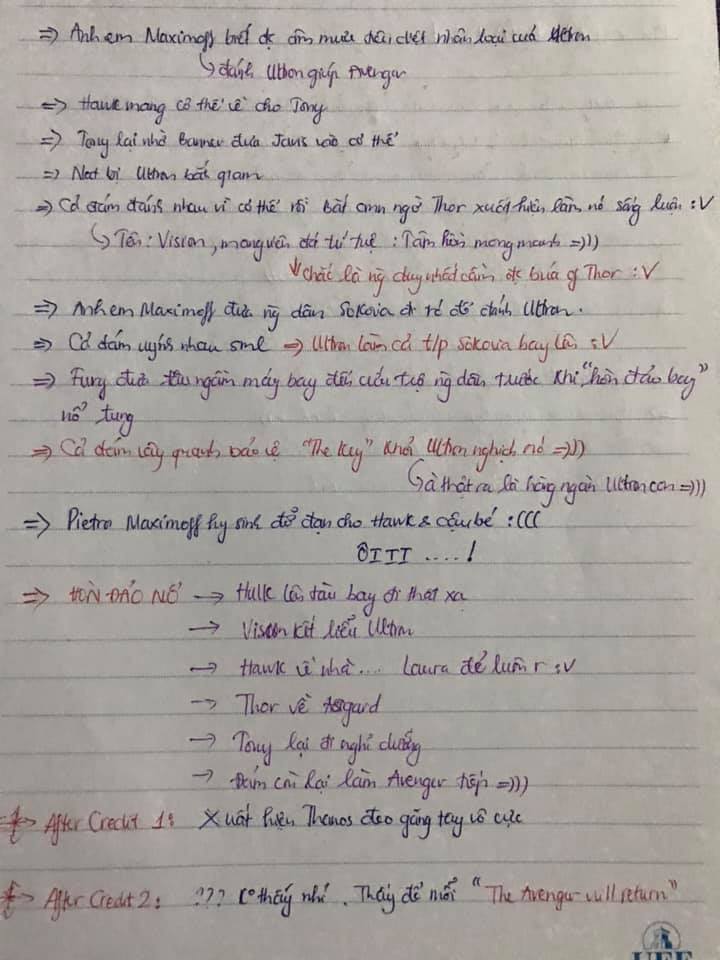 => Anh em Maximoff biết đc âm mưu tiêu diệt nhân loại của Ultron
↳ đánh Ultron giúp Avenger
=> Hawk mang cơ thể về cho Tony
=> Tony lại nhờ Banner đưa Javis vào cơ thể
=> Nat bị Ultron bắt giam
=> Cả đám đánh nhau vì cơ thể rồi bất cmn ngờ Thor xuất hiện làm nó sống luôn :V
↳ Tên : Vision, mang viên đá trí tuệ : Tâm hồn mong manh =)))
↓ chắc là ng duy nhất cầm đc búa of Thor :V
=> Anh em Maximoff đưa ng dân Sokovia đi rồi để đánh Ultron.
=> Cả đám uýnh nhau sml => Ultron làm cả t/p Sokovia bay lên :V
=> Fury đưa tàu ngầm máy bay đến cứu trợ ng dân trước khi "hòn đảo bay"
nổ tung
=> Cả đám vây quanh bảo vệ "The Key" khỏi Ultron nghịch nó =)))
↳ à thật ra là hàng ngàn Ultron con =)))
=> Pietro Maximoff hy sinh đỡ đạn cho Hawk & cậu bé :(((
ÔIII ....!
=> HÒN ĐẢO NỔ → Hulk lên tàu bay đi thật xa
→ Vision kết liễu Ultron
→ Hawk về nhà... Laura đẻ luôn r :V
→ Thor về Asgard
→ Tony lại đi nghỉ dưỡng
→ Đám còn lại làm Avenger tiếp =)))
After Credit 1: Xuất hiện Thanos đeo găng tay vô cực
After Credit 2: ??? Ko thấy nhỉ. Thấy để mỗi "The Avenger will return"
UEF